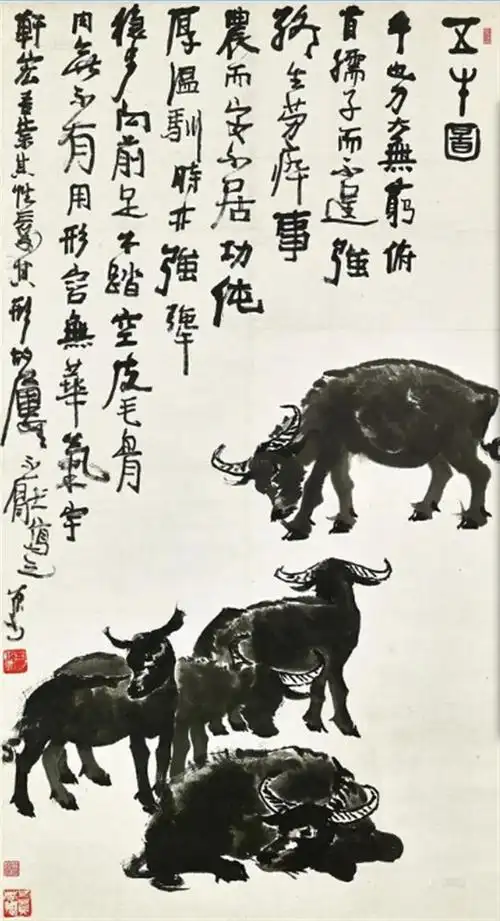 五牛圖
牛也力大無窮俯
首孺子而不逞強
終生勞瘁事
農而安不居功純
厚溫馴時亦強犟
穩步向前足不踏空皮毛骨
肉無不有用形容無華氣宇
軒宏吾崇其性愛其形故屢屢不厭寫之 可染